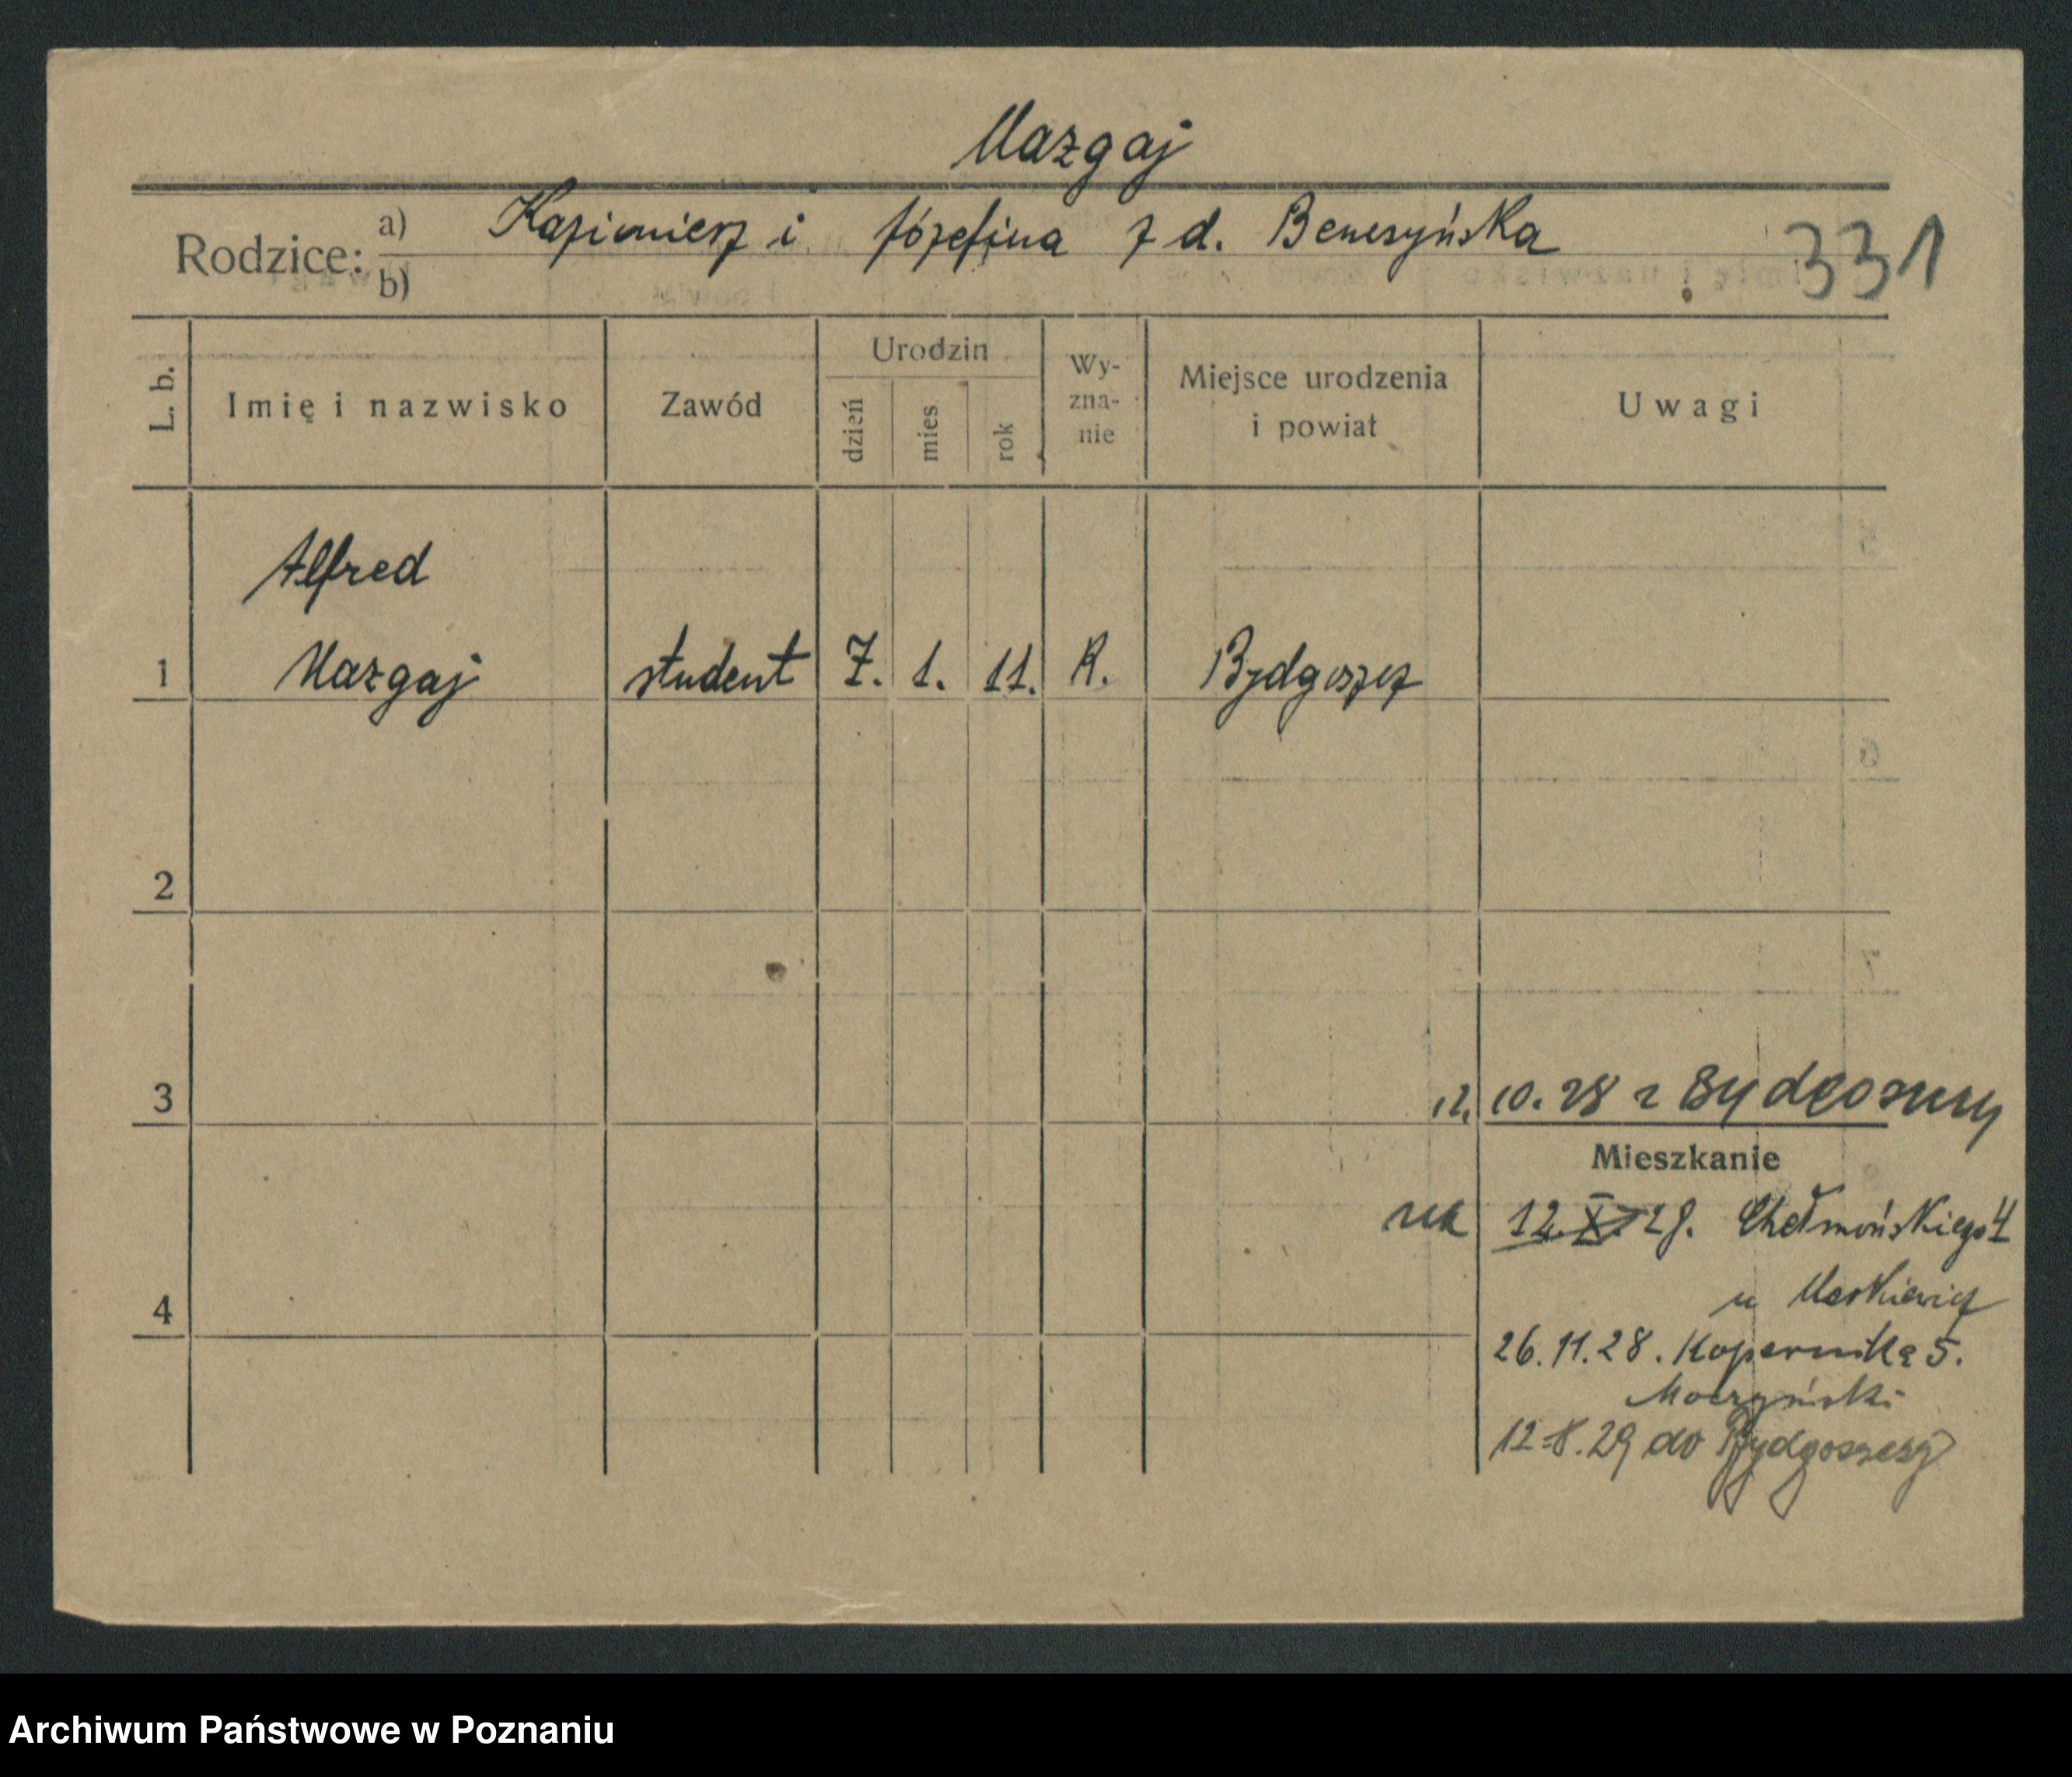 Mazgaj
Rodzice: a) Kazimierz i Józefina z d. Benesyńska
b)
331
L. b.
Imię i nazwisko
Zawód
Urodzin
dzień
mies
rok
Wy-
zna-
nie
Miejsce urodzenia
i powiat
Uwagi
Alfred
1 Mazgaj student 7. 1. 11. R. Bydgoszcz
2
3
12. 10. 28 z Bydgoszczy
Mieszkanie
12.X. 28. Chełmońskiego 4
u
4
26.11.28. Kopernika 5.
Moczyński
12-8.29 do Bydgoszczy
Archiwum Państwowe w Poznaniu